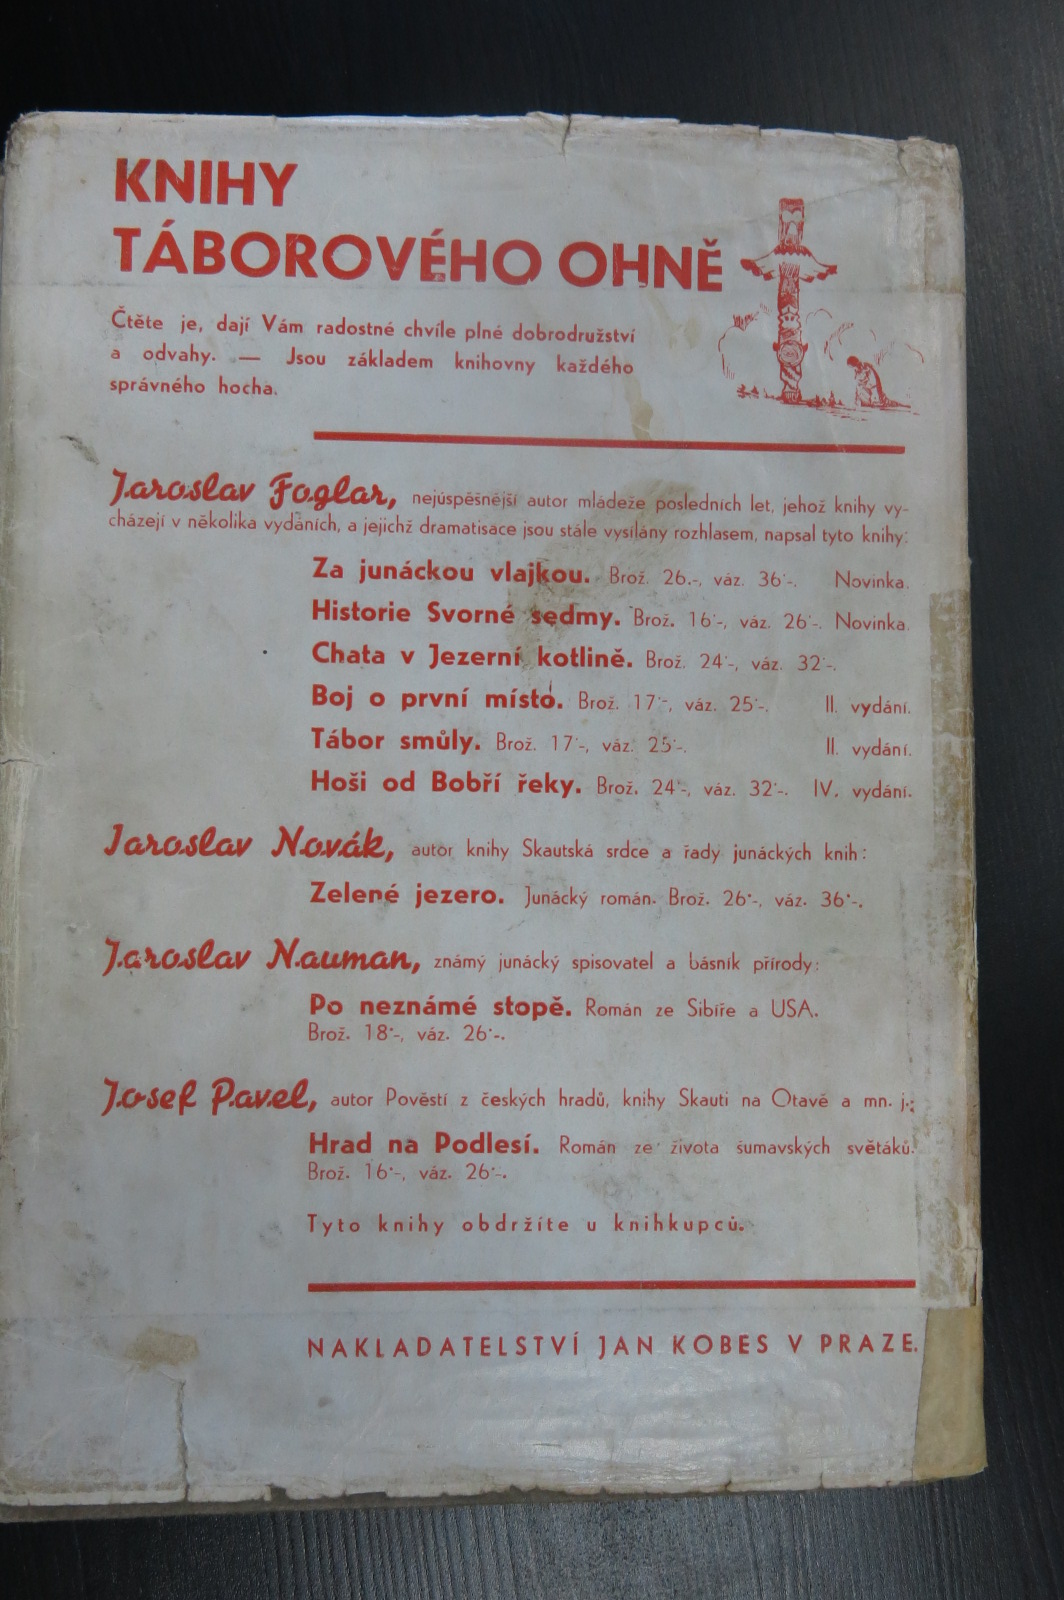 KNIHY
TÁBOROVÉHO OHNĚ
Čtěte je, dají Vám radostné chvíle plné dobrodružství
a odvahy. — Jsou základem knihovny každého
správného hocha.
Jaroslav Foglar, nejúspěšnější autor mládeže posledních let, jehož knihy vy-
cházejí v několika vydáních, a jejichž dramatisace jsou stále vysílány rozhlasem, napsal tyto knihy:
Za junáckou vlajkou. Brož. 26.-, váz. 36·-. Novinka.
Historie Svorné sedmy. Brož. 16·-, váz. 26·-. Novinka.
Chata v Jezerní kotlině. Brož. 24·-, váz. 32·-.
Boj o první místo. Brož. 17·-, váz. 25·-. II. vydání.
Tábor smůly. Brož. 17·-, váz. 25·-. II. vydání.
Hoši od Bobří řeky. Brož. 24·-, váz. 32·-. IV. vydání.
Jaroslav Novák, autor knihy Skautská srdce a řady junáckých knih:
Zelené jezero. Junácký román. Brož. 26·-, váz. 36·-.
Jaroslav Nauman, známý junácký spisovatel a básník přírody:
Po neznámé stopě. Román ze Sibiře a USA.
Brož. 18·-, váz. 26·-.
Josef Pavel, autor Pověstí z českých hradů, knihy Skauti na Otavě a mn. j.:
Hrad na Podlesí. Román ze života šumavských světáků.
Brož. 16·-, váz. 26·-.
Tyto knihy obdržíte u knihkupců.
NAKLADATELSTVÍ JAN KOBES V PRAZE.